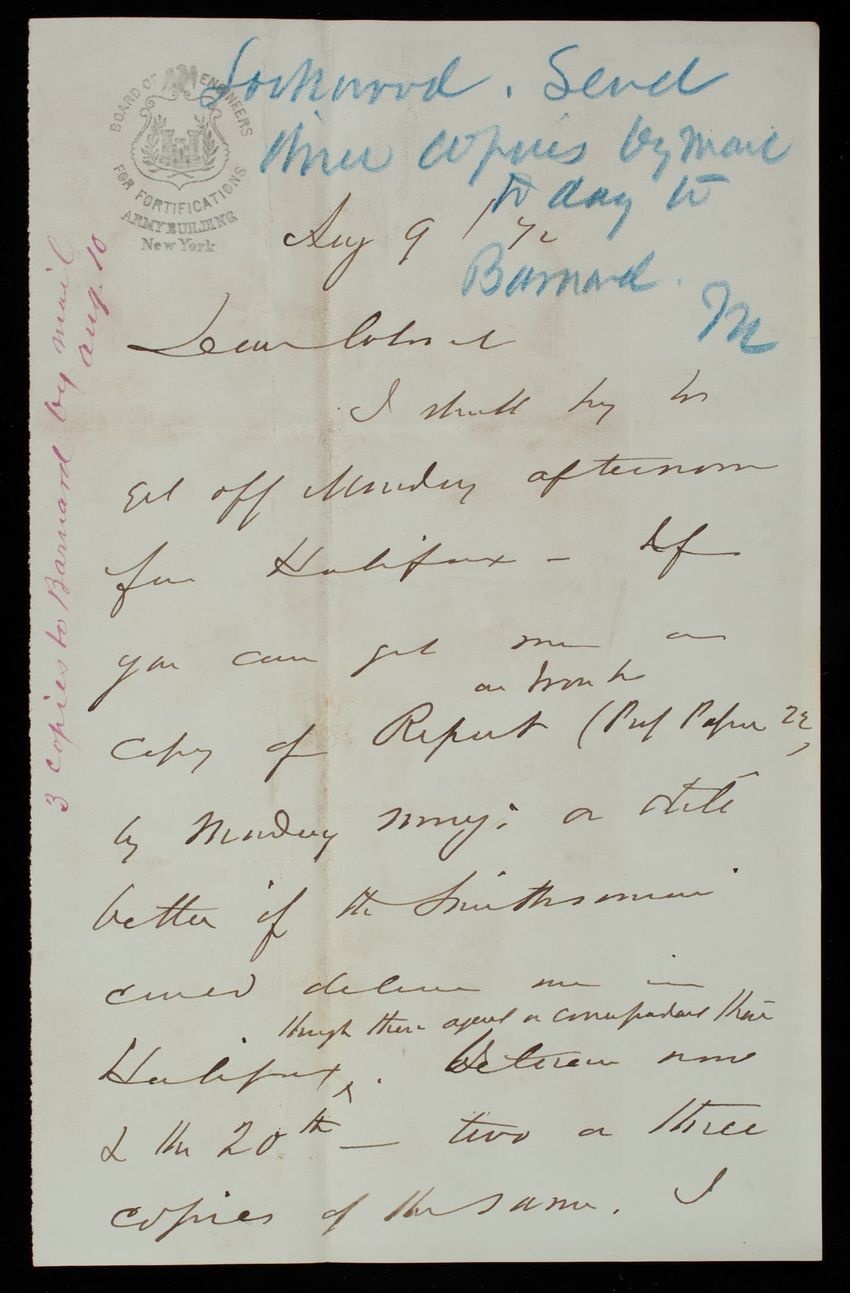 BOARD OF ENGINEERS
FOR FORTIFICATIONS
ARMY BUILDING
New York
Lockwood. Send
three copies by mail
to day to
Barnard.
M
3 copies to Barnard by mail
aug. 10
Aug 9 / 72
Dear Colonel
I shall try to
get off Monday afternoon
for Halifax – If
you can get me a
copy of Report (Prof Paper 22)
by Monday morng; or still
better if the Smithsonian
could deliver me in
through their agent or correspondent there
Halifax. Between now
& the 20th – two or three
copies of the same. I